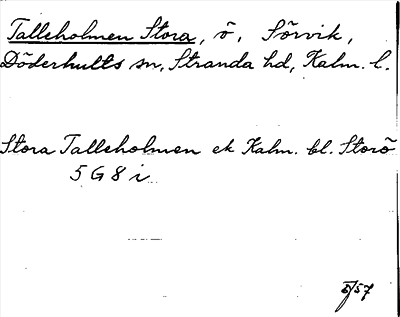 Talleholmen Stora, ö, Sörvik,
Döderhults sn, Stranda hd, Kalm. l.
Stora Talleholmen ek Kalm. bl. Storö
5 G 8 i
5/57